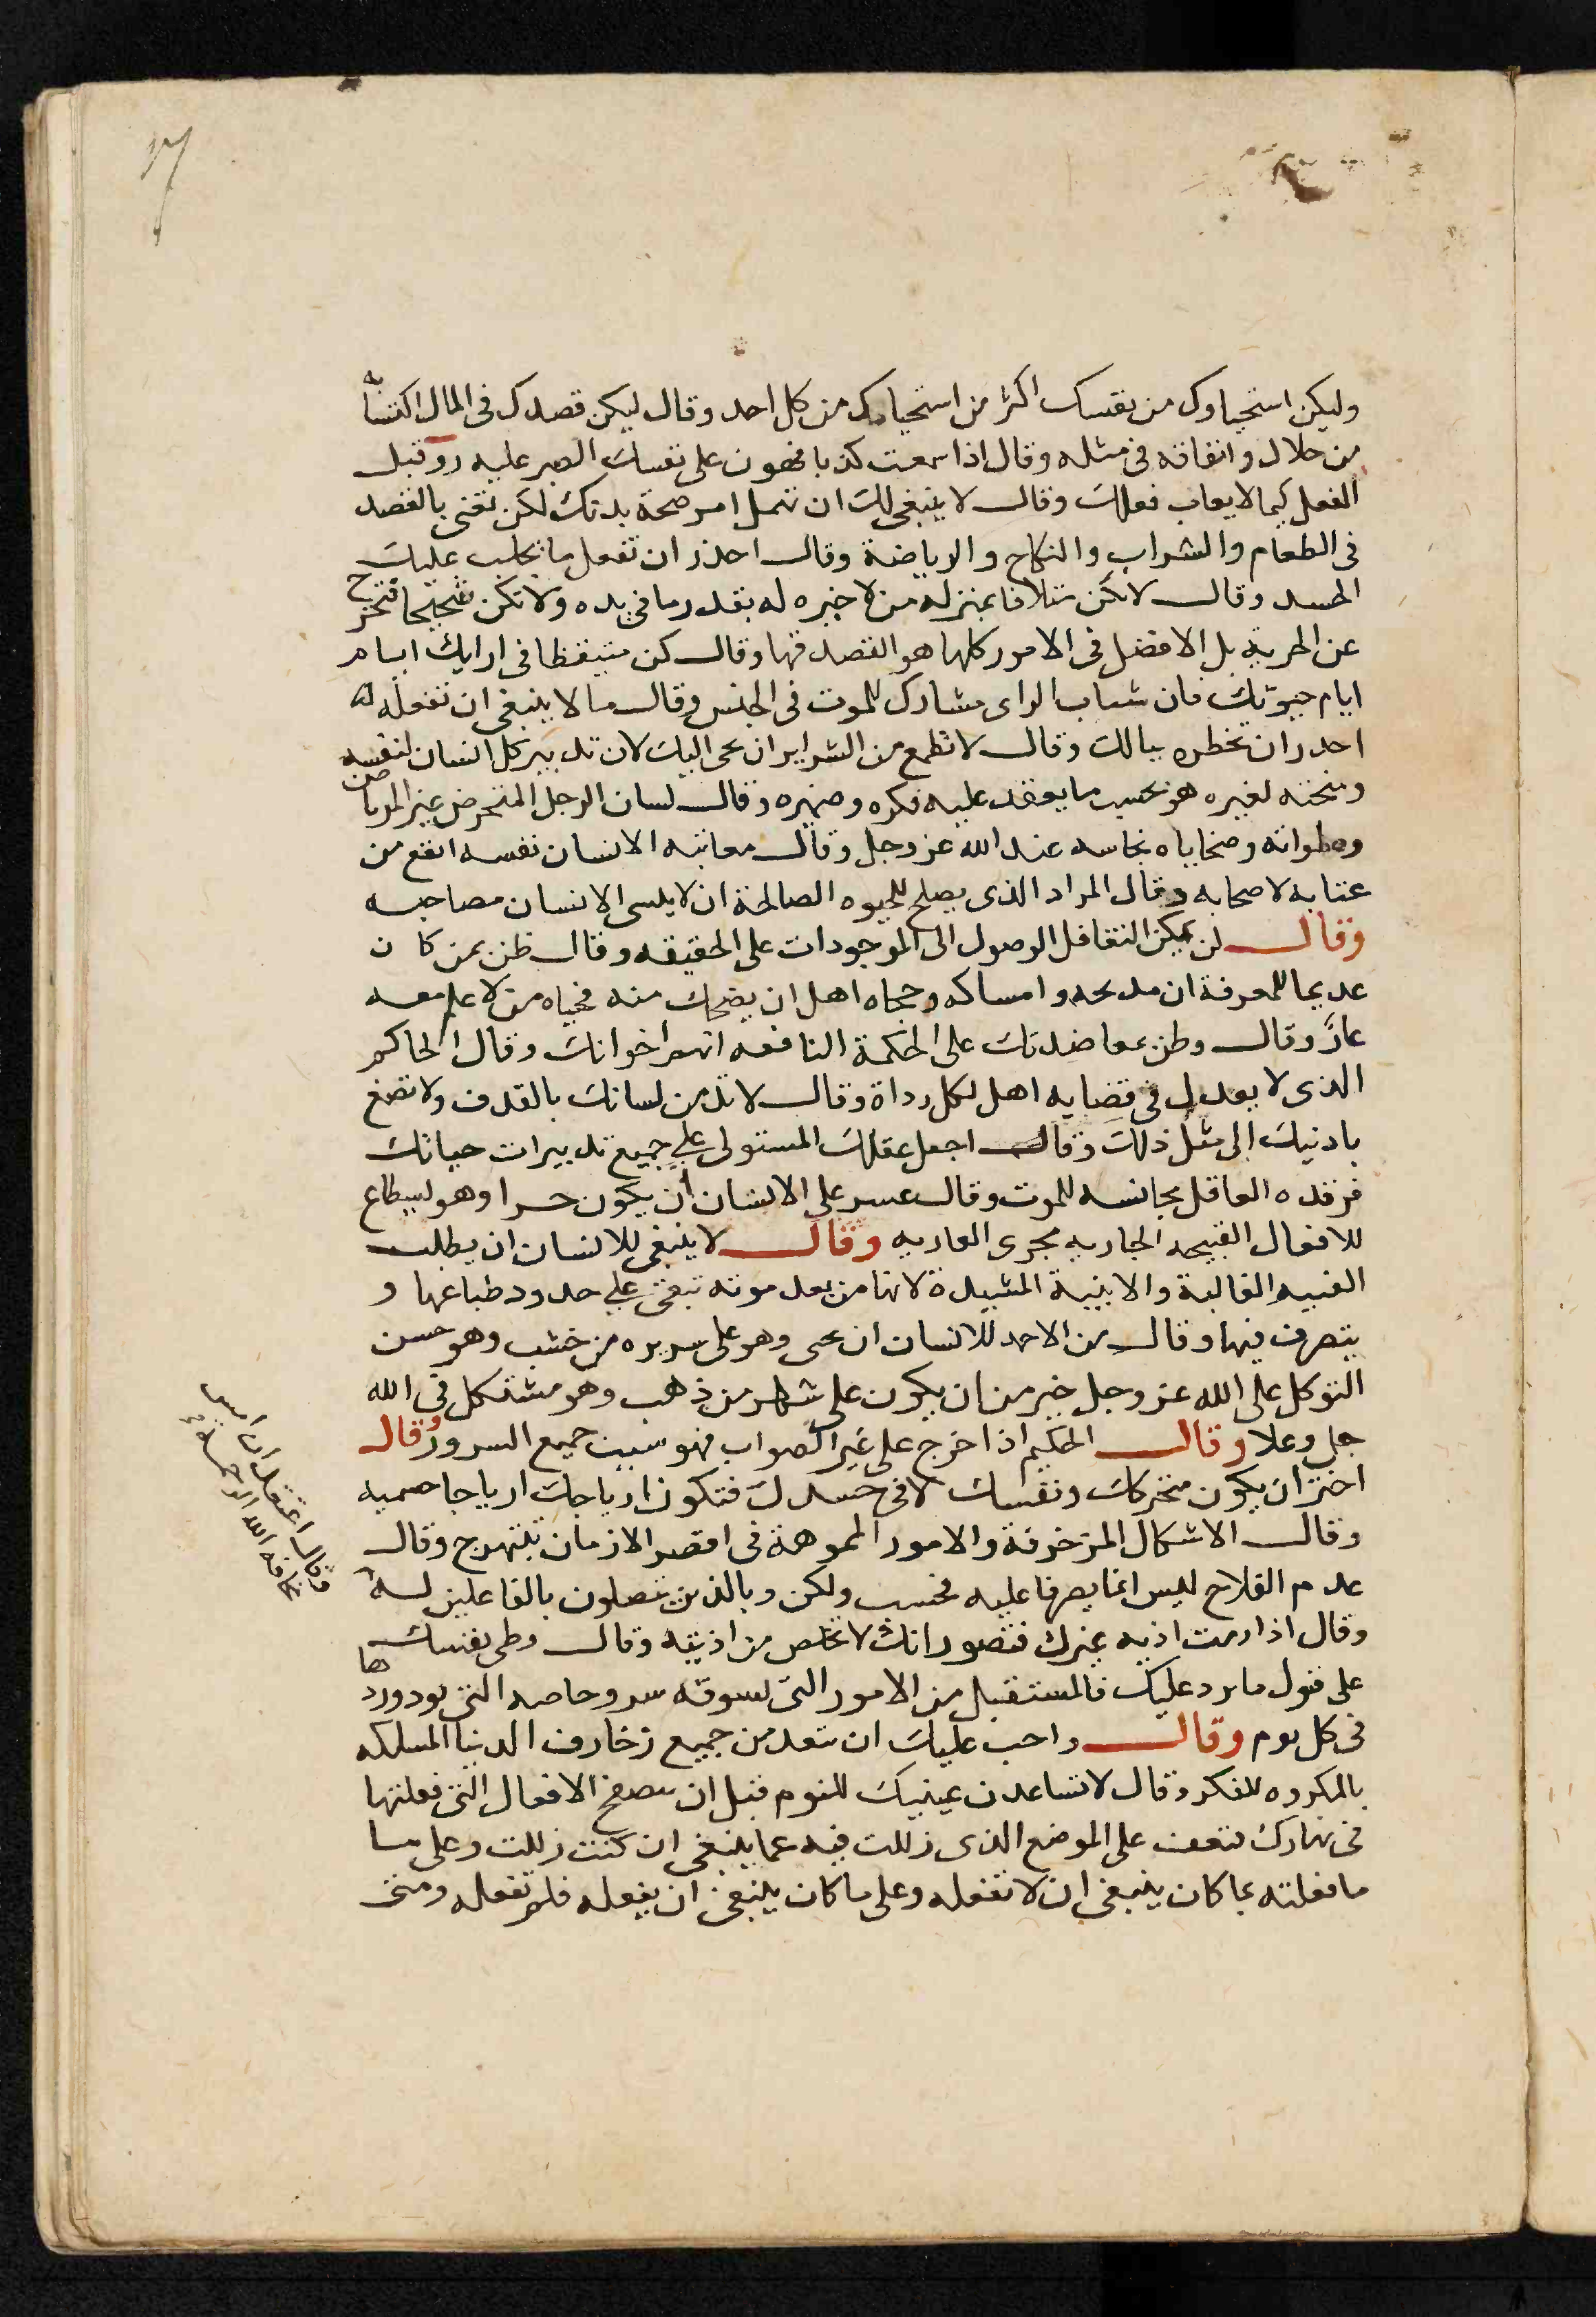 وليكن استحياوك من نفسك اكثر من استحيايك من كل احد وقال ليكن قصدك في المال اكتسابه
من حلال وانفاقه في مثله وقال اذا سمعت كذبا فهون على نفسك الصبر عليه رو قبل
الفعل كيما لا يعاب فعلك وقال لا ينبغي لك ان تهمل امر صحة بدنك لكن تقتني بالقصد
في الطعام والشراب والنكاح والرياضة وقال احذر ان تفعل ما يجلب عليك
الحسد وقال لا تكن متلافا بمنزله من لا خبره له بقدر ما في يده ولا تكن شحيحا فتخرج
عن الحرية بل الافضل في الامور كلها هو القصد فيها وقال كن متيقظا في ارايك ايام
ايام حيوتك فان شباب الراى مشارك للموت في الجنس وقال ما لا ينبغي ان تفعله
احدر ان تخطره ببالك وقال لا تطمع من الشرير ان يجى اليك لان تدبير كل انسان لنفسه
ومنحته لغيره هو بحسب ما يعقد عليه فكره وضميره وقال لسان الرجل المتخرص غير المرتاض
وصلواته وضحاياه نجاسه عند الله عز وجل وقال معاتبه الانسان نفسه انفع من
عتابه لاصحابه وقال المراد الذى يصلح للحيوه الصالحة ان لا يلسى الانسان مصاحبه
وقال لن يمكن التغافل الوصول الى الموجودات على الحقيقه وقال ظن بمن كان
عديما للمعرفة ان مدحه وامساكه وحجاه اهل ان يضحك منه فحياه من لا علم معه
عار وقال وطن معاضدتك على الحكمة النافعه انهم اخوانك وقال الحاكم
الذى لا يعدل في قضايه اهل لكل رداة وقال لا تدمن لسانك بالقدف ولا تصغ
باذنيك الى مثل ذلك وقال اجعل عقلك المستولى على جميع تدبيرات حياتك
فرقده العاقل مجانسه للموت وقال عسر على الانسان ان يكون حرا وهو ليطاع
للافعال القبيحه الجاريه مجرى العاديه وقال لا ينبغي للانسان ان يطلب
القنيه الغالبة والابنية المشيدة لانها من بعد موته تبقى على حدود طباعها و
يتصرف فيها وقال من الاحمد للانسان ان يحى وهو على سريره من خشب وهو حسن
التوكل على الله عز وجل خير من ان يكون على شهر من ذهب وهو متشكل في الله
جل وعلا وقال الحكيم اذا خرج على غير الصواب فهو سبب جميع السرور وقال
اختر ان يكون متحركك ونفسك لا في جسدك فتكون ارياحك ارياحا صميه
وقال الاشكال المزخرفة والامور المموهة في اقصر الازمان تتبهرج وقال
عدم الفلاح ليس انما يصرفها عليه فحسب ولكن وبالذين يتصلون بالفاعلين له
وقال اذا رمت اذيه غيرك فتصور انك لا تخلص من اذيته وقال وطى نفسك
على قبول ما يرد عليك فالمستقبل من الامور التى لسوقه سروحاصه التى يوردها
في كل يوم وقال واجب عليك ان تبعد من جميع زخارف الدنيا المسلكه
بالمكروه للفكر وقال لا تساعدن عينيك للنوم قبل ان تتصفح الافعال التى فعلتها
في نهارك فتقف على الموضع الذى زللت فيه عما ينبغي ان كنت زللت وعلى ما
ما فعلته بما كان ينبغي ان لا تفعله وعلى ما كان ينبغي ان يفعله فلم تفعله ومتى
وقال اعتقد ان اس
مخافه الله الرحمة